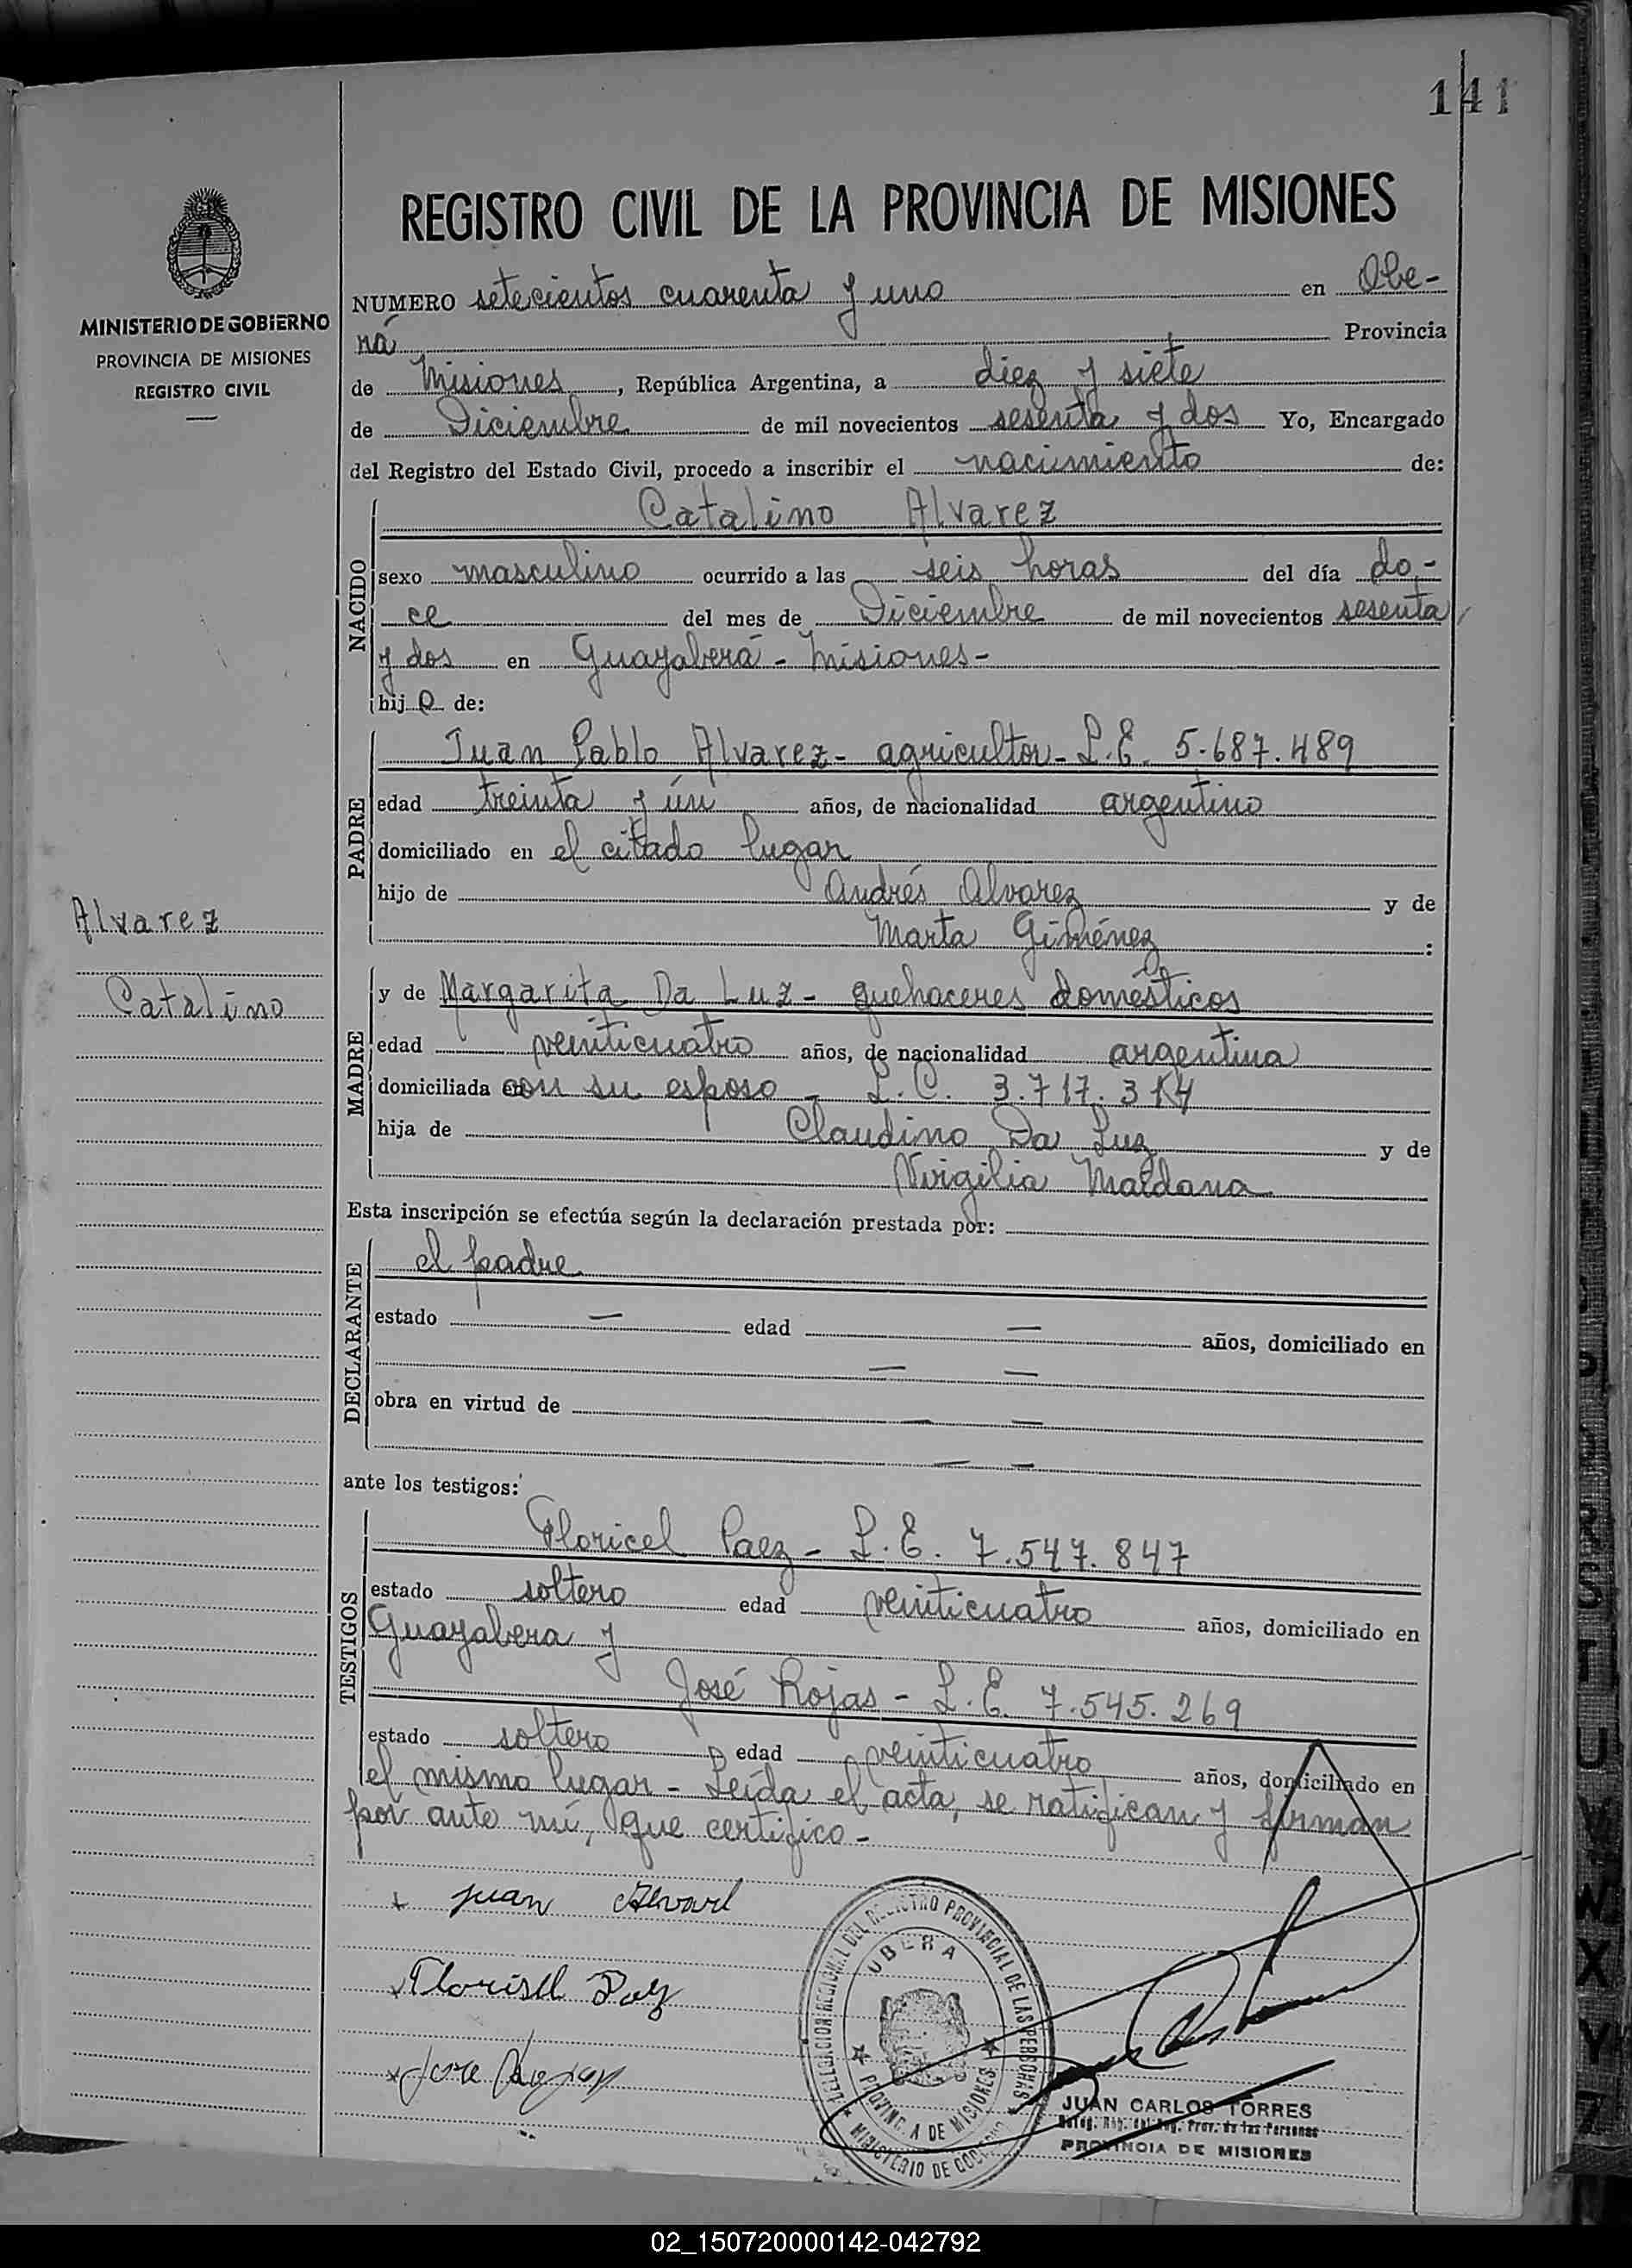 141
REGISTRO CIVIL DE LA PROVINCIA DE MISIONES
MINISTERIO DE GOBIERNO
PROVINCIA DE MISIONES
REGISTRO CIVIL
NUMERO setecientos cuarenta y uno en Obe-
rá Provincia
de Misiones, República Argentina, a diez y siete
de Diciembre de mil novecientos sesenta y dos Yo, Encargado
del Registro del Estado Civil, procedo a inscribir el nacimiento de:
NACIDO
Catalino Alvarez
sexo masculino ocurrido a las seis horas del día do-
ce del mes de Diciembre de mil novecientos sesenta
y dos en Guayaberá - Misiones-
hijo de:
PADRE
Juan Pablo Alvarez- agricultor- L.E. 5.687.489
edad treinta y ún años, de nacionalidad argentino
domiciliado en el citado lugar
hijo de Andrés Alvarez y de
Marta Giménez :
Alvarez
Catalino
MADRE
y de Margarita Da Luz- quehaceres domésticos
edad veinticuatro años, de nacionalidad argentina
domiciliada con su esposo - L.C. 3.717.314
hija de Claudino Da Luz y de
Virgilia Maldana
Esta inscripción se efectúa según la declaración prestada por:
DECLARANTE
el padre
estado — edad — años, domiciliado en
— —
obra en virtud de — —
— —
ante los testigos:
TESTIGOS
Floricel Paez- L.E. 7.547.847
estado soltero edad veinticuatro años, domiciliado en
Guayabera y
José Rojas- L.E. 7.545.269
estado soltero edad veinticuatro años, domiciliado en
el mismo lugar - Leída el acta, se ratifican y firman
por ante mí, que certifico-
Juan
Florisel Paez
Jose Rojas
DELEGACION REGIONAL DEL REGISTRO PROVINCIAL DE LAS PERSONAS
OBERA
PROVINCIA DE MISIONES
MINISTERIO DE GOBIERNO
JUAN CARLOS TORRES
Prov. de las Personas
PROVINCIA DE MISIONES
U
V
W
X
Y
Z
02_150720000142-042792